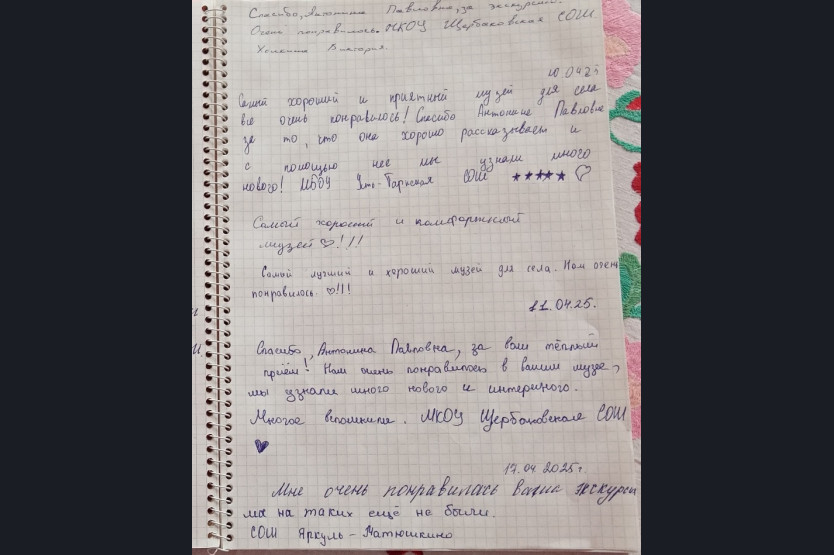 Спасибо, Антонина Павловна, за экскурсию.
Очень понравилось. МКОУ Щербаковская СОШ
Виктория.
10.04.25
Самый хороший и приятный музей для села
все очень понравилось! Спасибо Антонине Павловне
за то, что она хорошо рассказывает и
с помощью нее мы узнали много
нового! МБОУ Усть-Таркская СОШ ★★★★★ ♡
Самый хороший и комфортный
музей ♡!!!
Самый лучший и хороший музей для села. Нам очень
понравилось. ♡!!!
11.04.25.
Спасибо, Антонина Павловна, за ваш тёплый
приём! Нам очень понравилось в вашем музее,
мы узнали много нового и интерного.
Многое вспомнили. МКОУ Щербаковская СОШ
♥
17.04 2025г.
Мне очень понравилась ваша экскурси
мы на таких ещё не были.
СОШ Яркуль-Матюшкино